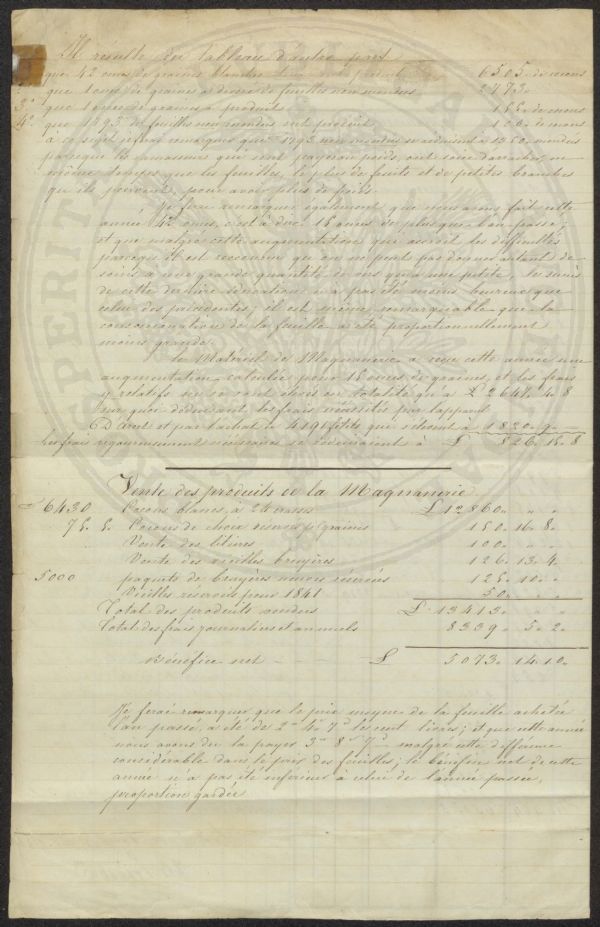 Il résulte du tableau d'autre part
que 42 onces de graines blanches ont produit 6505 de moins
que 1 once de graines a dévoré de feuilles non mondées 2773
3° que 1 once de graines a produit 155 de moins
4° que 1795 de feuilles non mondées ont produit 100 de moins
à ce sujet je ferai remarquer que 1795 non mondées se réduisent à 1360 mondées
parceque les ramasseurs que sont payés au poids, ont soin d'arracher en
même temps que les feuilles, le plus de fruits et de petites branches
qu'ils peuvent, pour avoir plus de poids.
Je ferai remarquer également que nous avons fait cette
année 42 onces, c'est à dire 15 onces de plus que l'an passé,
et que malgré cette augmentation que accroit les difficultés
parceque il est reconnu qu'on ne peut pas donner autant de
soins à une grande quantité de vers qu'à une petite, le succès
de cette dernière éducation n'a pas été moins heureux que
celui des précédentes; il est même remarquable que la
consommation de la feuille a été proportionnellement
moins grande.
Le Matériel de Magnanerie a reçu cette année une
augmentation calculée pour 15 onces de graines, et les frais
y relatifs se sont élevés en totalité à £ 2647. 4. 8
sur quoi déduisant les frais nécessités par l'appart
et par l'achat de 4191 filets que s'élèvent à 1820. 9. —
Les frais rigoureusement nécessaires se réduiraient à £ 826. 15. 8
Vente des produits de la Magnanerie
6430 Cocons blancs, à 2 £ £ 12860. " "
75. 6. Cocons de choix réservés pr graines 150. 16. 8.
Vente des litières 100. " "
Vente des vieilles bruyères 126. 13. 4.
5000 paquets de bruyères neuves réservées 125. 10.
Vieilles réservées pour 1841 50.
Total des produits vendus £ 13413.
Total des frais journaliers et annuels 8339. 5. 2.
Bénéfice net £ 5073. 14. 10.
Je ferai remarquer que le prix moyen de la feuille achetée
l'an passé, a été de 2 4 7 les cent livres; et que cette année
nous avons du la payer 3 8 7 malgré cette différence
considérable dans le prix des feuilles; le bénéfice net de cette
année n'a pas été inférieur à celui de l'année passée,
proportion gardée.